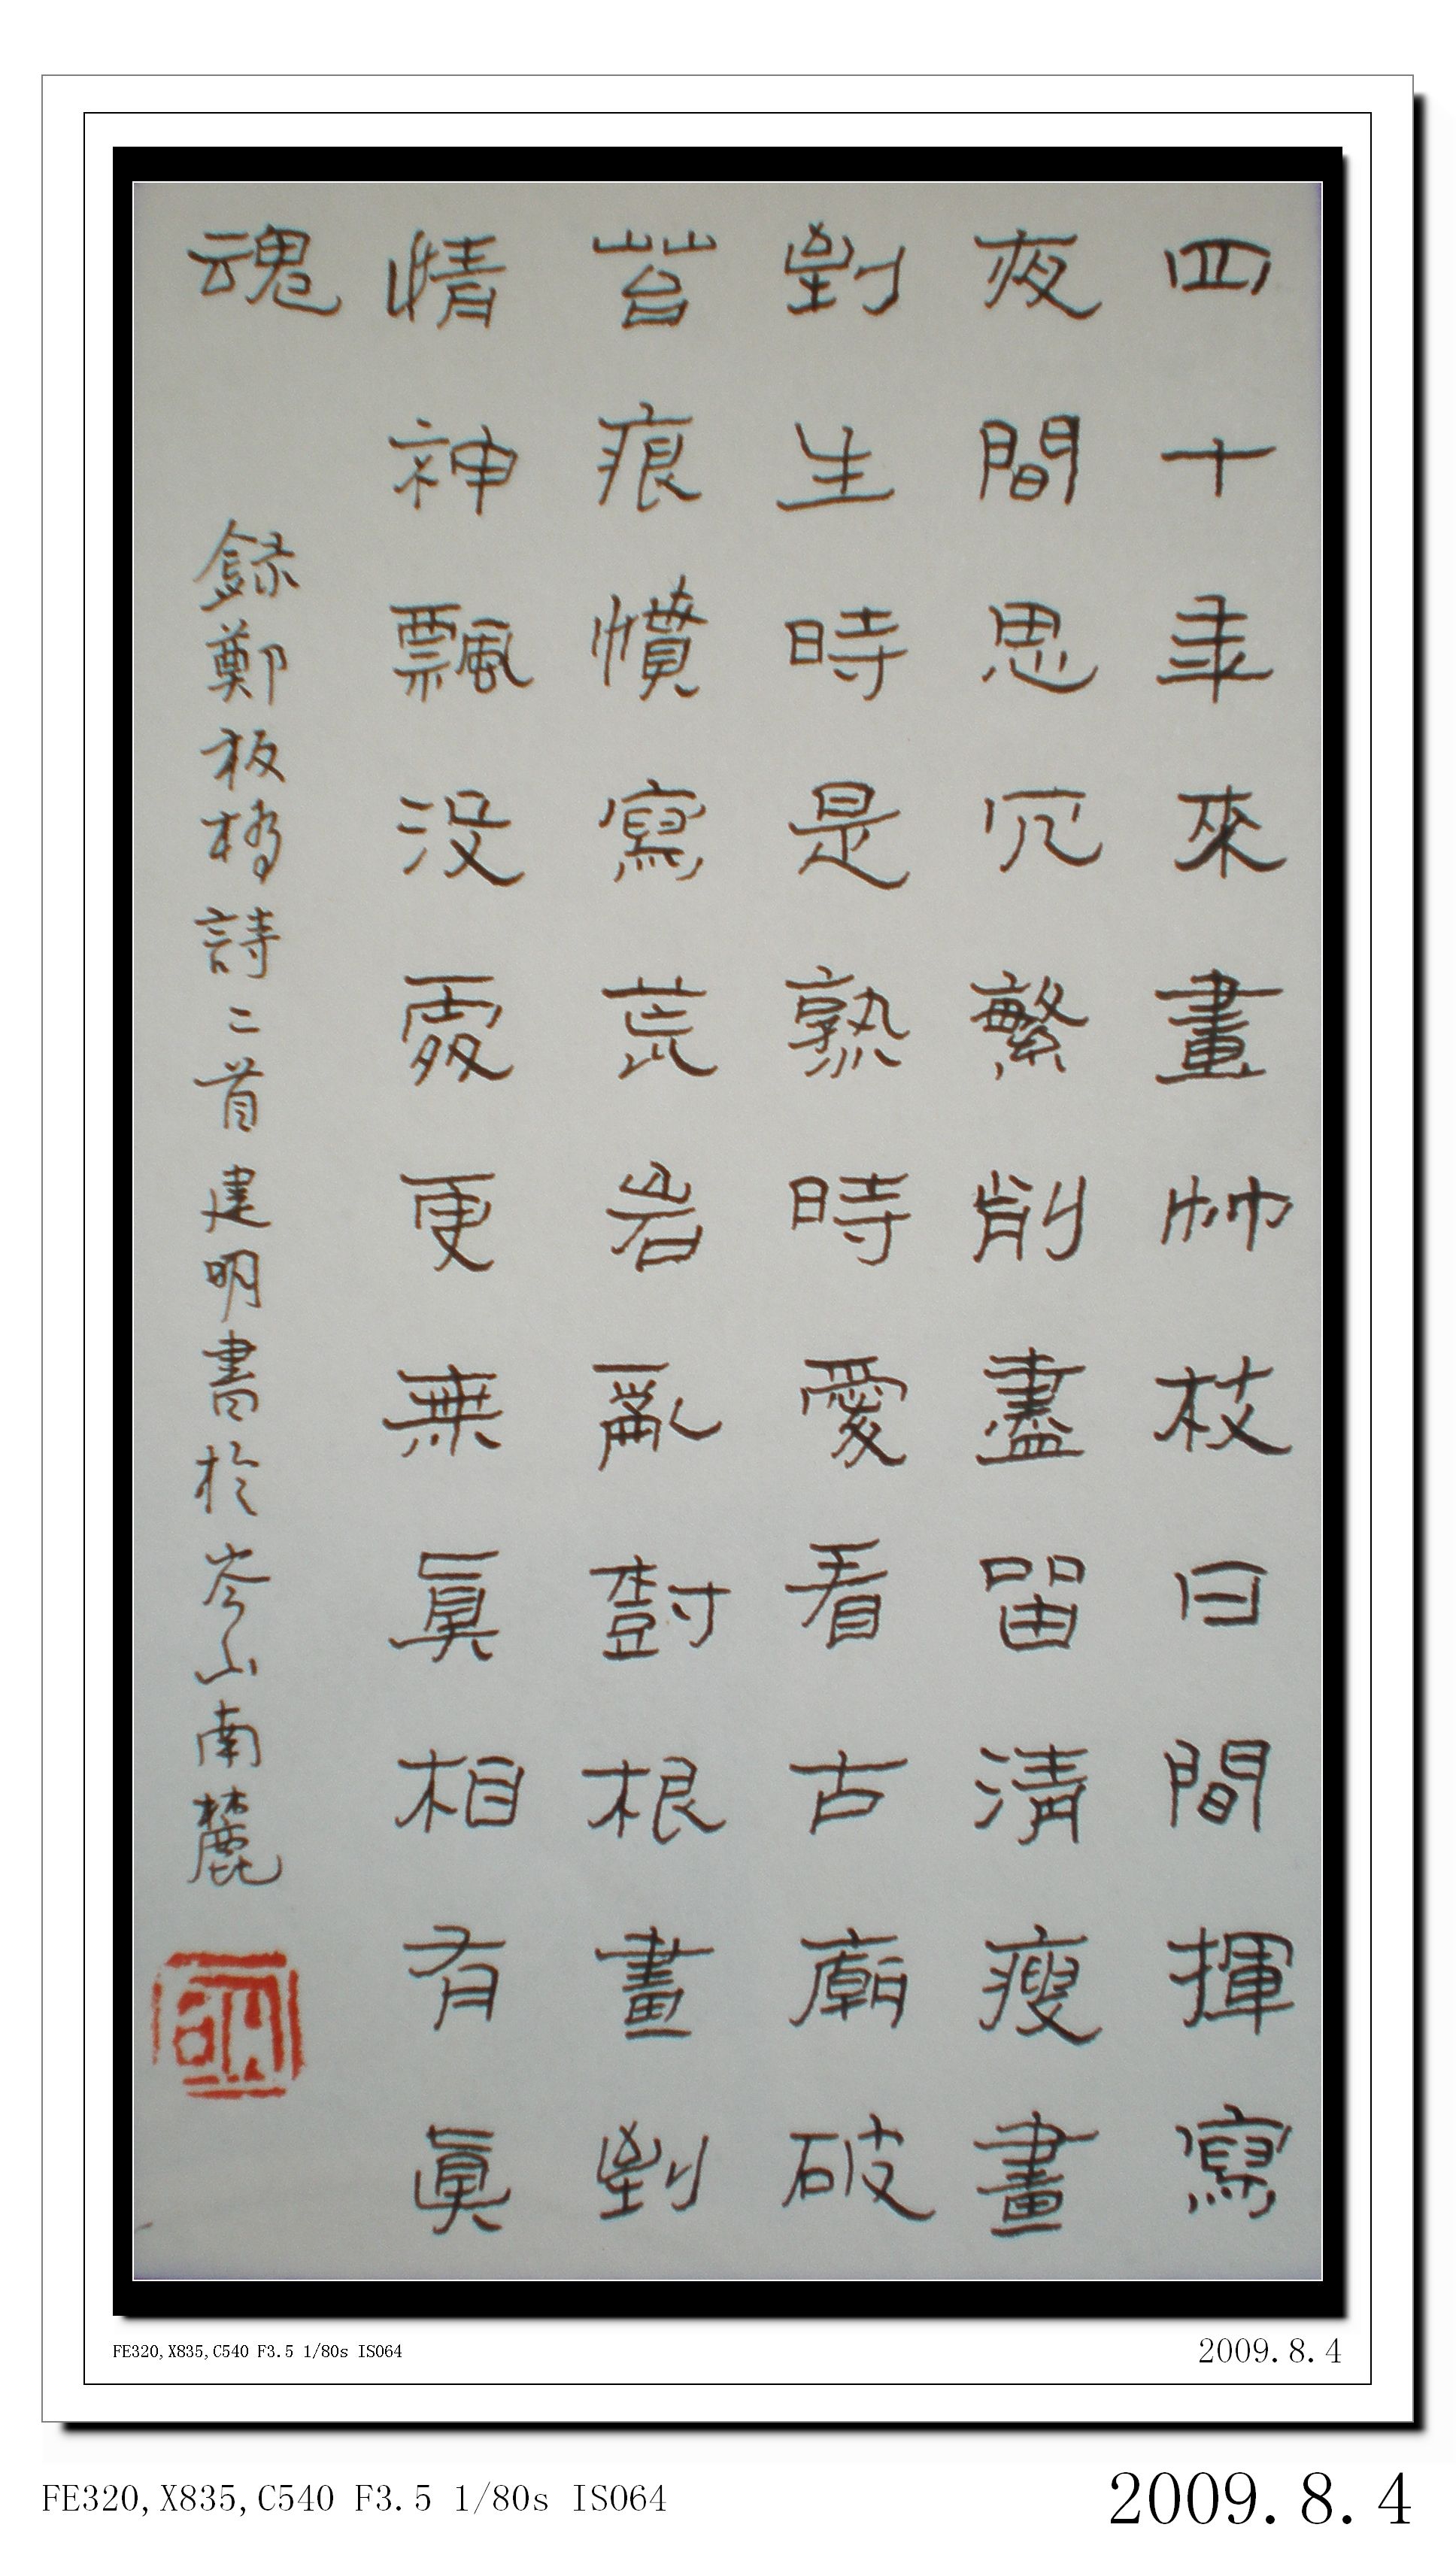 四十年來畫竹枝日間揮寫
夜間思冗繁削盡留清瘦畫
到生時是熟時愛看古廟破
苔痕慣寫荒岩亂樹根畫到
情神飄没處更無真相有真
魂
錄鄭板橋詩二首建明書於岑山南麓
FE320,X835,C540 F3.5 1/80s ISO64
2009.8.4
FE320,X835,C540 F3.5 1/80s ISO64
2009.8.4